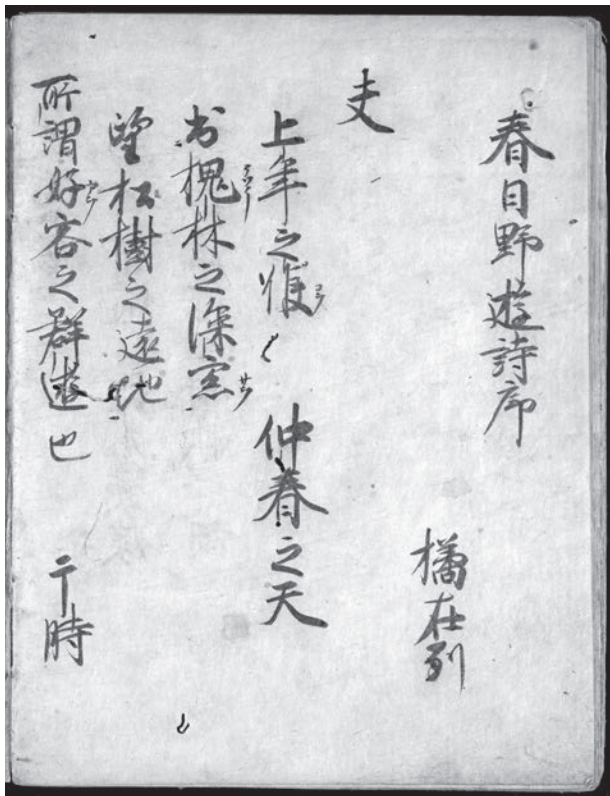 春日野遊詩序
橘在列
夫
上年之 仲春之天
出槐林之深窓
望松樹之遠地
所謂好客之群遊也 于時